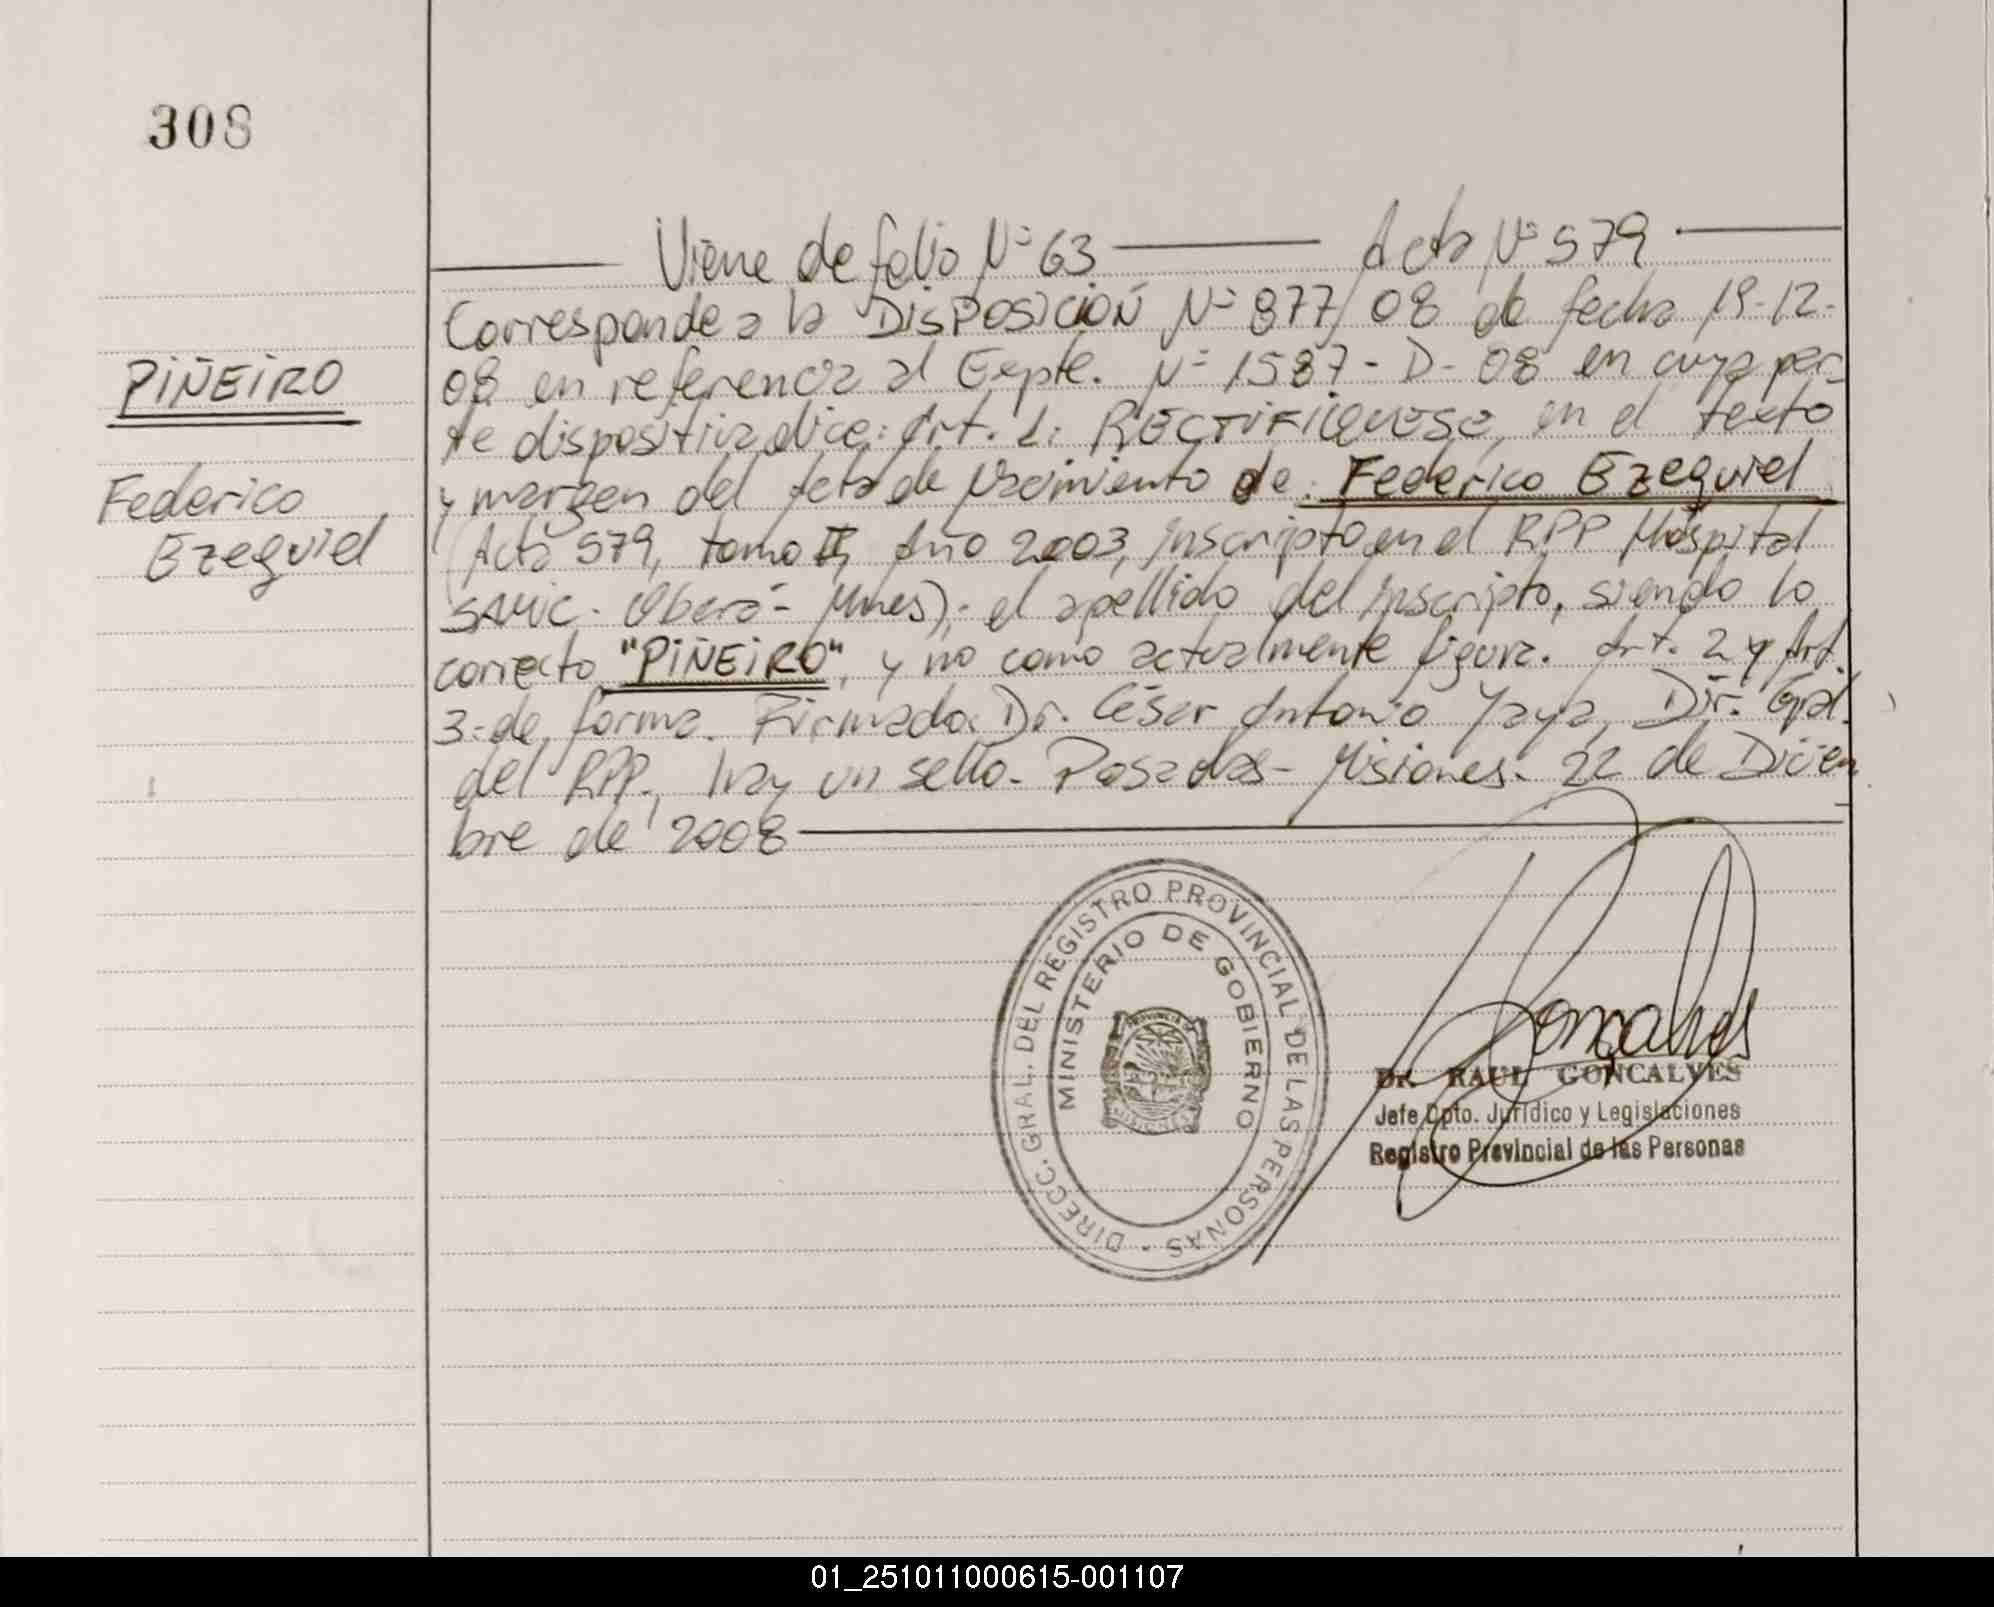 308
Viene de folio Nº 63 Acta Nº 579
Corresponde a la DISPOSICIÓN Nº 877/08 de fecha 19-12-
08 en referencia al Expte. Nº 1587-D-08 en cuya par-
te dispositiva dice: Art. 1: RECTIFIQUESE, en el texto
y margen del Acta de Nacimiento de Federico Ezequiel
(Acta 579, tomo II, Año 2003, inscripto en el RPP Hospital
SAMIC. Oberá- Mnes).- el apellido del inscripto, siendo lo
correcto "PIÑEIRO", y no como actualmente figura. Art. 2 y Art.
3.- de forma. Firmado: Dr. César Antonio Yaya, Dir. Gral.
del RPP., hay un sello.- Posadas- Misiones. 22 de Diciem
bre de 2008
PIÑEIRO
Federico
Ezequiel
DIRECC. GRAL. DEL REGISTRO PROVINCIAL DE LAS PERSONAS -
MINISTERIO DE GOBIERNO
PROVINCIA DE
MISIONES
Goncalves
Dr. RAUL GONCALVES
Jefe Dpto. Jurídico y Legislaciones
Registro Provincial de las Personas
01_251011000615-001107